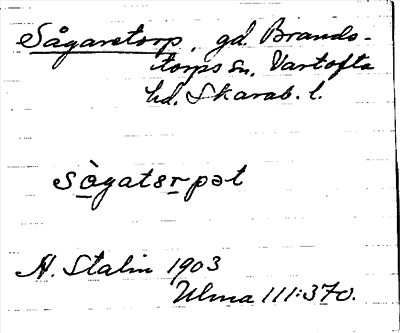 Sågaretorp, gd. Brands-
torps sn. Vartofta
hd. Skarab. l.
sògatsrpət
H. Stalin 1903
Ulma 111:370.